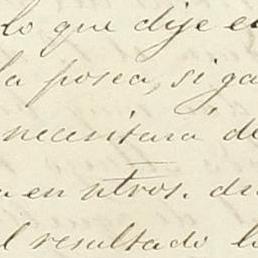 lo que dije e
la posea, si ga
necesitará de
en ntros. du
el resultado lo